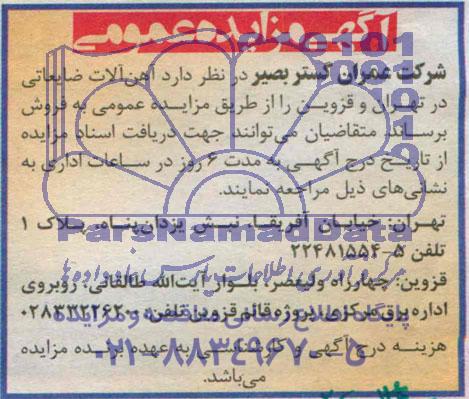 آگهی مزایده عمومی
شرکت عمران گستر بصیر در نظر دارد آهن‌آلات ضایعاتی
در تهران و قزوین را از طریق مزایده عمومی به فروش
برساند. متقاضیان می‌توانند جهت دریافت اسناد مزایده
از تاریخ درج آگهی به مدت ۶ روز در ساعات اداری به
نشانی‌های ذیل مراجعه نمایند.
تهران: خیابان آفریقا، نبش یزدان‌پناه، پلاک ۱
ParsNamadData
تلفن ۵-۲۲۴۸۱۵۵۴
قزوین: چهارراه ولیعصر، بلوار آیت‌الله طالقانی، روبروی
اداره برق مرکزی، پروژه قائم قزوین تلفن:
هزینه درج آگهی و کارشناسی به عهده برنده مزایده
۰۲۱-۸۸۳۴۹۶۷۰-۵
می‌باشد.